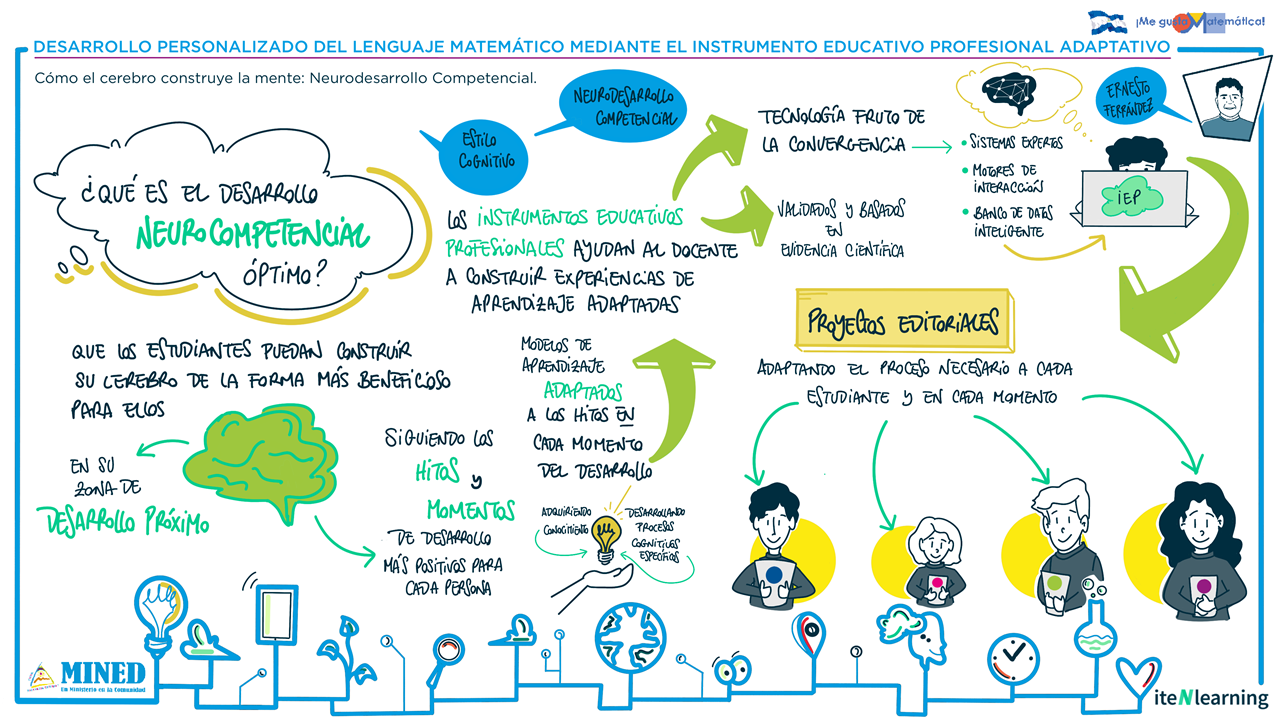 ¡Me gusta Matemática!
DESARROLLO PERSONALIZADO DEL LENGUAJE MATEMÁTICO MEDIANTE EL INSTRUMENTO EDUCATIVO PROFESIONAL ADAPTATIVO
Cómo el cerebro construye la mente: Neurodesarrollo Competencial.
¿QUÉ ES EL DESARROLLO
NEUROCOMPETENCIAL
ÓPTIMO?
QUE LOS ESTUDIANTES PUEDAN CONSTRUIR
SU CEREBRO DE LA FORMA MÁS BENEFICIOSO
PARA ELLOS
EN SU
ZONA DE
DESARROLLO PRÓXIMO
SIGUIENDO LOS
HITOS y
MOMENTOS
DE DESARROLLO
MÁS POSITIVOS PARA
CADA PERSONA
ESTILO
COGNITIVO
NEURODESARROLLO
COMPETENCIAL
LOS INSTRUMENTOS EDUCATIVOS
PROFESIONALES AYUDAN AL DOCENTE
A CONSTRUIR EXPERIENCIAS DE
APRENDIZAJE ADAPTADAS
MODELOS DE
APRENDIZAJE
ADAPTADOS
A LOS HITOS EN
CADA MOMENTO
DEL DESARROLLO
ADQUIRIENDO
CONOCIMIENTO
DESARROLLANDO
PROCESOS
COGNITIVOS
ESPECÍFICOS
TECNOLOGÍA FRUTO DE
LA CONVERGENCIA
• SISTEMAS EXPERTOS
• MOTORES DE
INTERACCIÓN
• BANCO DE DATOS
INTELIGENTE
VALIDADOS Y BASADOS
EN
EVIDENCIA CIENTÍFICA
ERNESTO
FERRÁNDEZ
iEP
PROYECTOS EDITORIALES
ADAPTANDO EL PROCESO NECESARIO A CADA
ESTUDIANTE Y EN CADA MOMENTO
MINED
Un Ministerio en la Comunidad
iteNlearning